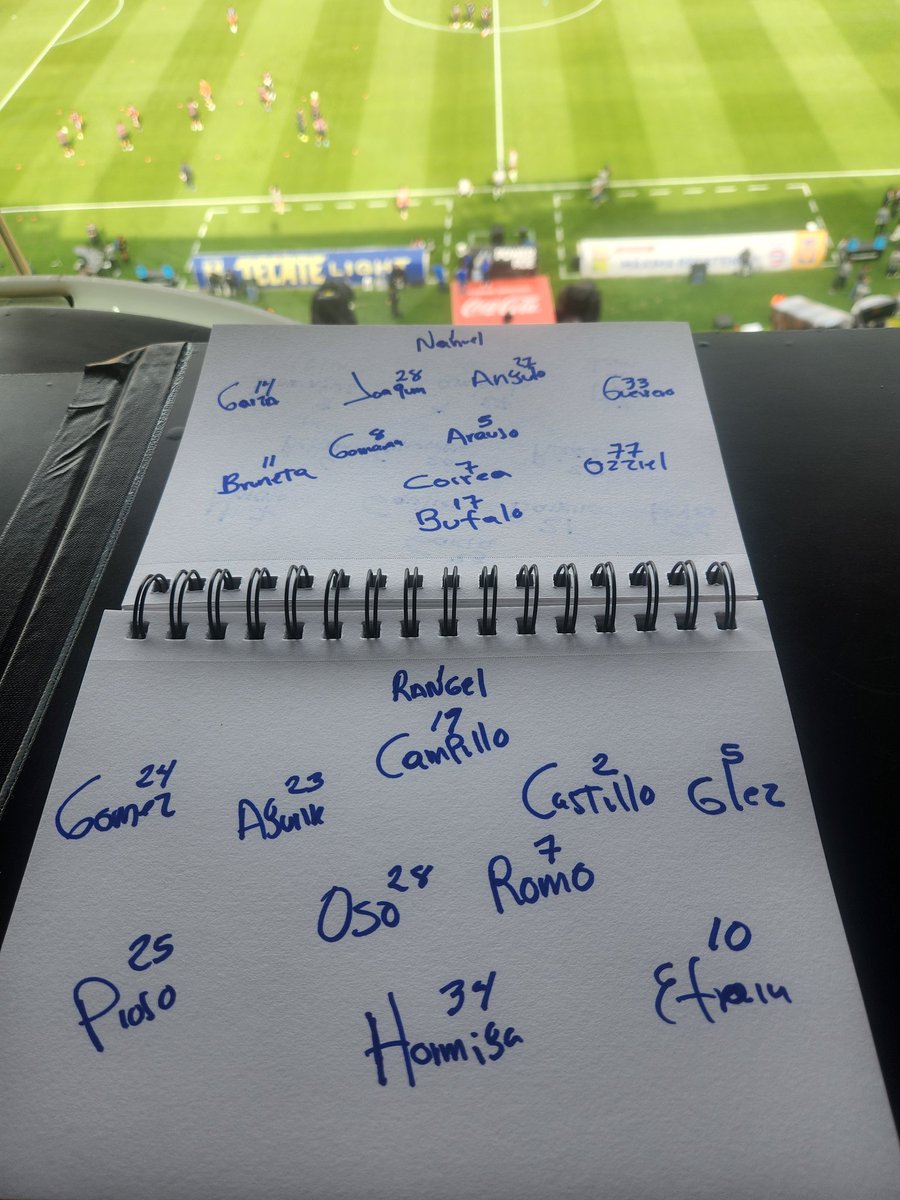 TECATE LIGHT
Coca-Cola
Nahuel
14 28 27 33
Garza Joaquin Angulo
8 5
Gorriaran Araujo
11 7 77
Bruneta Correa Ozziel
17
Bufalo
RANGEL
19
Campillo
24 23 2 5
Gomez Aguirre Castillo Glez
28 7
Oso Romo
25 10
Piojo Efrain
34
Hormiga